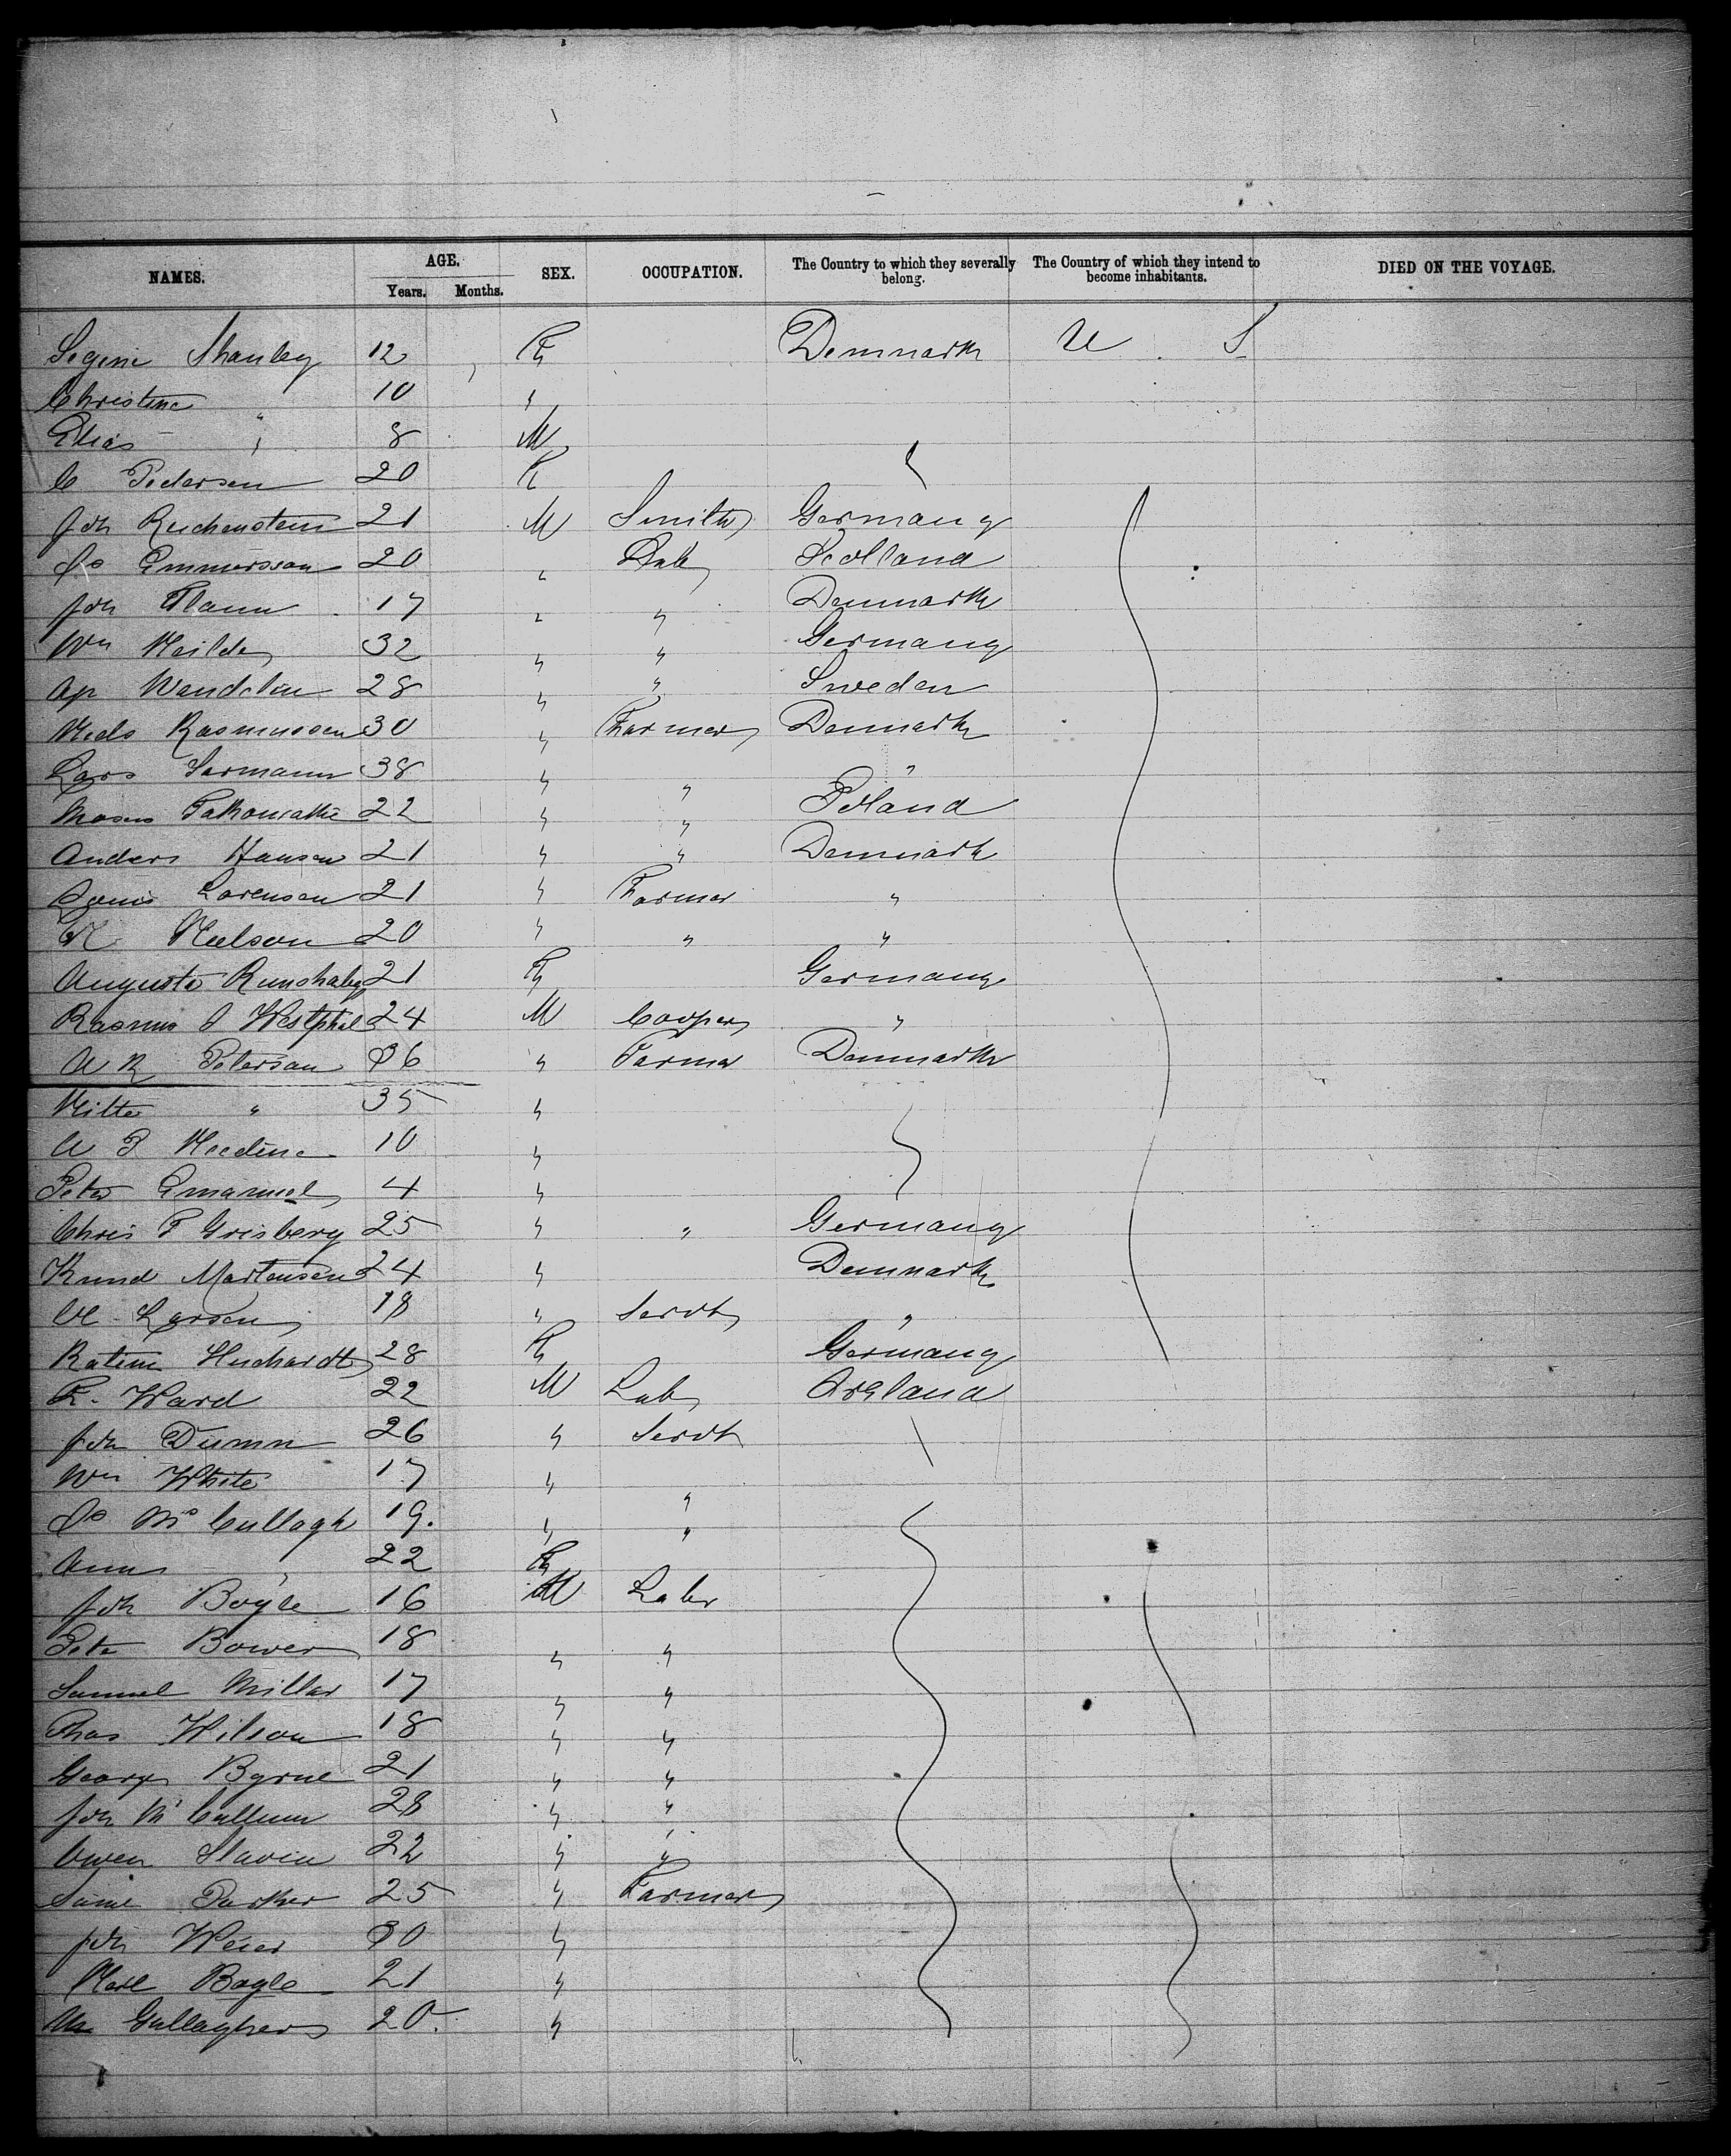 NAMES. AGE. SEX. OCCUPATION. The Country to which they severally belong. The Country of which they intend to become inhabitants. DIED ON THE VOYAGE.
Years. Months.
12 F Denmark U. S.
Christine 10 "
Elias " 8 M
C Pedersen 20 F
Joh Reichenstein 21 M Smith Germany
Jo Emmersson 20 " Lab Scotland
Joh Flann 17 " " Denmark
Wm 32 " " Germany
Ap Wendelin 28 " " Sweden
Neils Rasmussen 30 " Farmer Denmark
Lars 38 " " "
Moses 22 " " Poland
Anders Hansen 21 " " Denmark
Louis Lorensen 21 " Farmer "
N Neelson 20 " " "
Augusta 21 F Germany
Rasmus J Westphal 24 M Cooper "
A R Peterson 36 " Farmer Denmark
" 35 "
A P 10 "
Peter Emanuel 4 "
Chris P Grisberg 25 " " Germany
Knud Martensen 24 " Denmark
Larsen 18 " Servt "
28 F Germany
F. Ward 22 M Lab Ireland
Joh Dumn 26 " Servt
Wm White 17 " "
Jo McCullagh 19. " "
Ann " 22 F
Joh Boyle 16 M Labr
Pete Bower 18 " "
Samuel Millar 17 " "
Thos Wilson 18 " "
George Byrne 21 " "
Joh McCallum 28 " "
Owen Slavin 22 " "
Saml Parker 25 " Farmer
Joh Weier 30 "
Neil Bogle 21 "
Gallagher 20. "